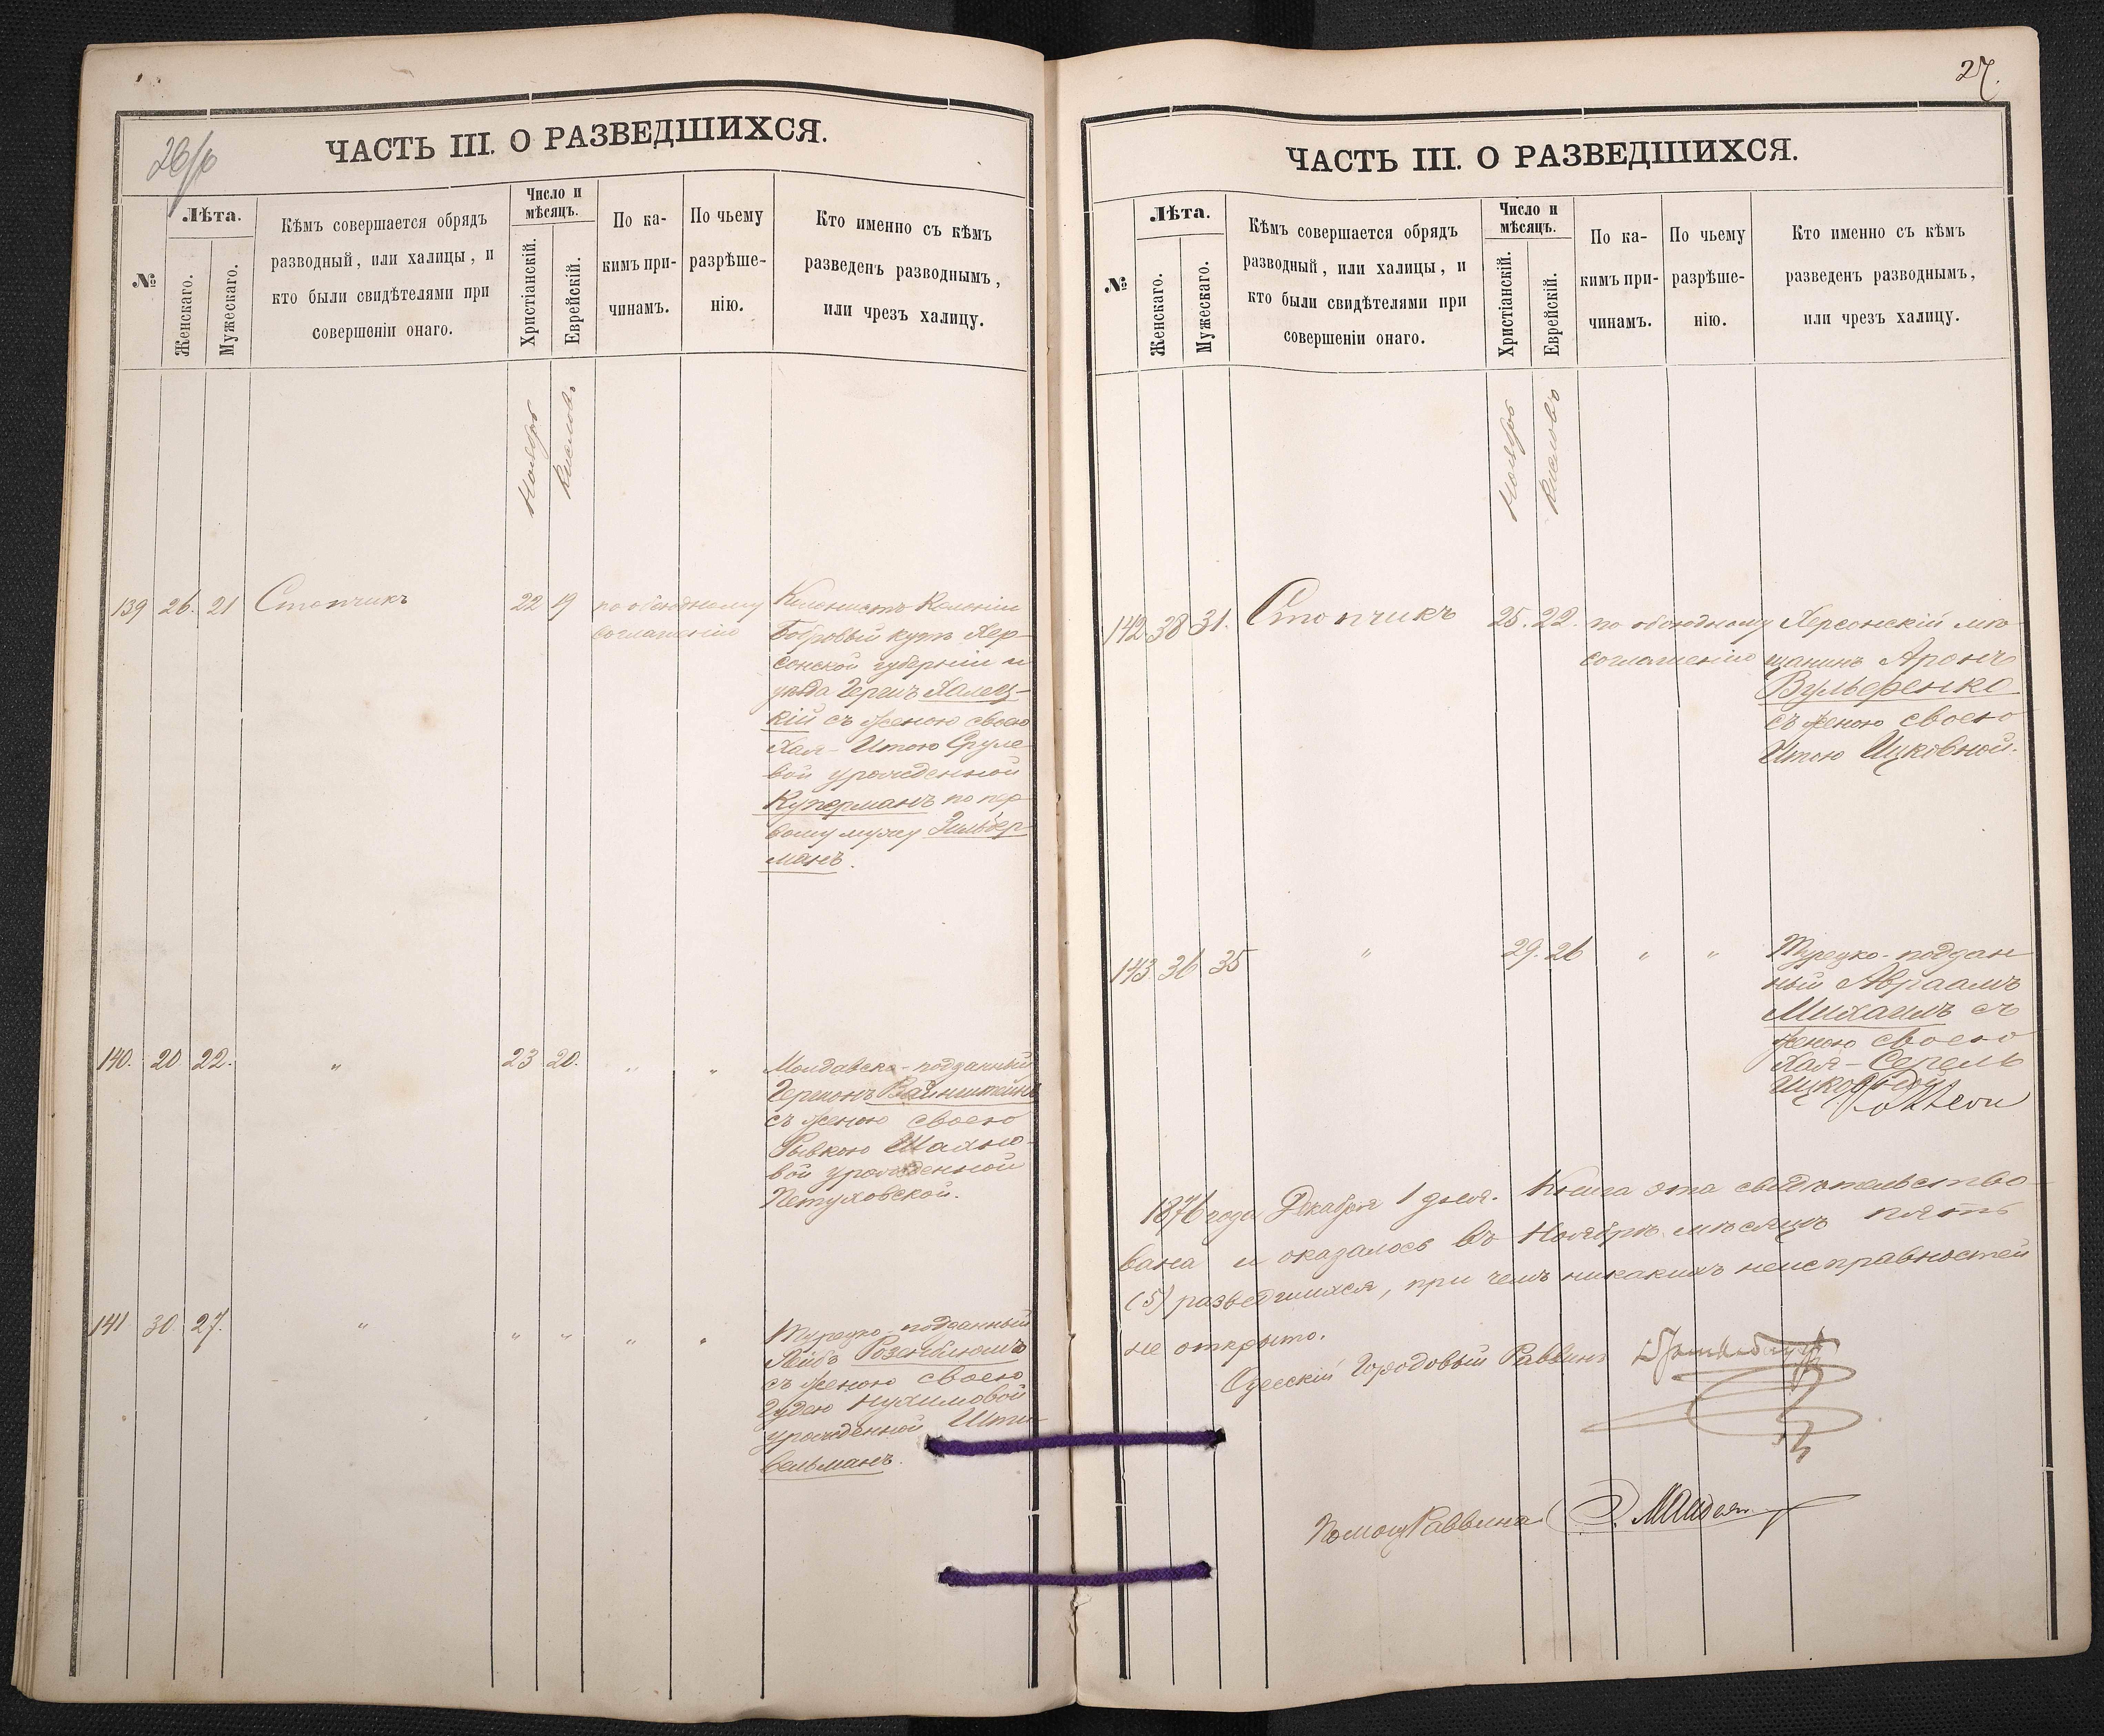 ЧАСТЬ III. О РАЗВЕДШИХСЯ.
№
Лѣта.
Женскаго.
Мужескаго.
Кѣмъ совершается обрядъ
разводный, или халицы, и
кто были свидѣтелями при
совершеніи онаго.
Число и
мѣсяцъ.
Христіанскій.
Еврейскій.
По ка-
кимъ при-
чинамъ.
По чьему
разрѣше-
нію.
Кто именно съ кѣмъ
разведенъ разводнымъ,
или чрезъ халицу.
Ноябрь
Кислевъ
139 26. 21 Стопчикъ 22 19 по обоюдному
соглашенію
Колонистъ Колоніи
Бобровый кутъ Хер-
сонской губерніи и
уѣзда Гершъ Халец-
кій съ женою своею
Хая-Итою Сруле-
вой урожденной
Куперманъ по пер-
вому мужу Зильбер-
манъ.
140. 20 22. " 23 20. " "
Молдавско-подданный
Гершонъ Вайнштейнъ
съ женою своею
Рывкою Шахно-
вой урожденной
Петуховской.
141 30 27. " " " " "
Турецко-подданный
Лейбъ Розенблюмъ
съ женою своею
Гудею Нухимовой
урожденной Шти-
вельманъ.
27.
ЧАСТЬ III. О РАЗВЕДШИХСЯ.
№
Лѣта.
Женскаго.
Мужескаго.
Кѣмъ совершается обрядъ
разводный, или халицы, и
кто были свидѣтелями при
совершеніи онаго.
Число и
мѣсяцъ.
Христіанскій.
Еврейскій.
По ка-
кимъ при-
чинамъ.
По чьему
разрѣше-
нію.
Кто именно съ кѣмъ
разведенъ разводнымъ,
или чрезъ халицу.
Ноябрь
Кислевъ
142 38 31. Стопчикъ 25. 22. по обоюдному
соглашенію
Херсонскій мѣ-
щанинъ Аронъ
Вульфенко
съ женою своею
Итою Ицковной.
143 36 35 " 29. 26 " "
Турецко-поддан-
ный Авраамъ
Михаилъ съ
женою своею
Хая-Сепель
1876 года Декабря 1 дня. Книга эта свидѣтельство-
вана и оказалось въ Ноябрѣ мѣсяцѣ пять
(5) разведшихся, при чемъ никакихъ неисправностей
не открыто.
Одесскій Городовый Раввинъ
Помощ. Раввина